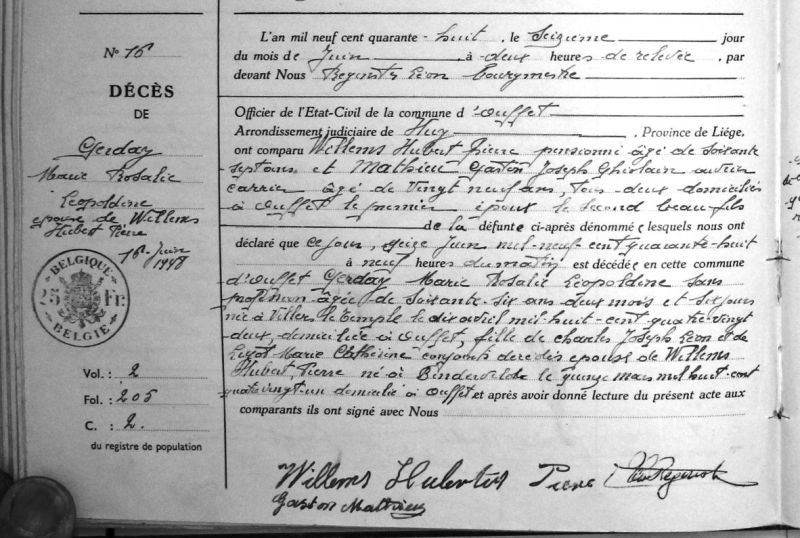 N° 16
DÉCÈS
DE
Gerday
Marie Rosalie
Leopoldine
epouse de Willems
Hubert Pierre
16 Juin
1948
BELGIQUE
25 Fr.
BELGIË
Vol. : 2
Fol. : 205
C. : 2.
du registre de population
L'an mil neuf cent quarante-huit, le Seizième jour
du mois de Juin, à deux heures de relevée, par
devant Nous Léon bourgmestre
Officier de l'Etat-Civil de la commune d'Ouffet
Arrondissement judiciaire de Huy, Province de Liége,
ont comparu Willems Hubert Pierre pensionné âgé de soixante
sept ans et Mathieu Gaston Joseph Ghislain ouvrier
carrier âgé de vingt neuf ans, tous deux domiciliés
à Ouffet le premier époux le second beau-fils
de la défunte ci-après dénommée lesquels nous ont
déclaré que ce jour, seize Juin mil-neuf cent quarante-huit
à neuf heures du matin est décédée en cette commune
d'Ouffet Gerday Marie Rosalie Leopoldine sans
profession âgée de soixante-six ans deux mois et six jours
née à Villers le Temple le dix avril mil-huit-cent quatre-vingt
deux, domiciliée à Ouffet, fille de Charles Joseph Léon et de
Marie Catherine conjoints décédés épouse de Willems
Hubert Pierre né à le quinze mars mil huit-cent
quatre vingt-un domicilié à Ouffet et après avoir donné lecture du présent acte aux
comparants ils ont signé avec Nous
Willems Hubertus Pierre
Gaston Mathieu